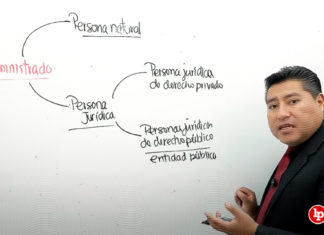 Persona natural
ministrado
Persona jurídica
de derecho privado
Persona
Jurídica
Persona jurídica
de derecho público
entidad pública
LP